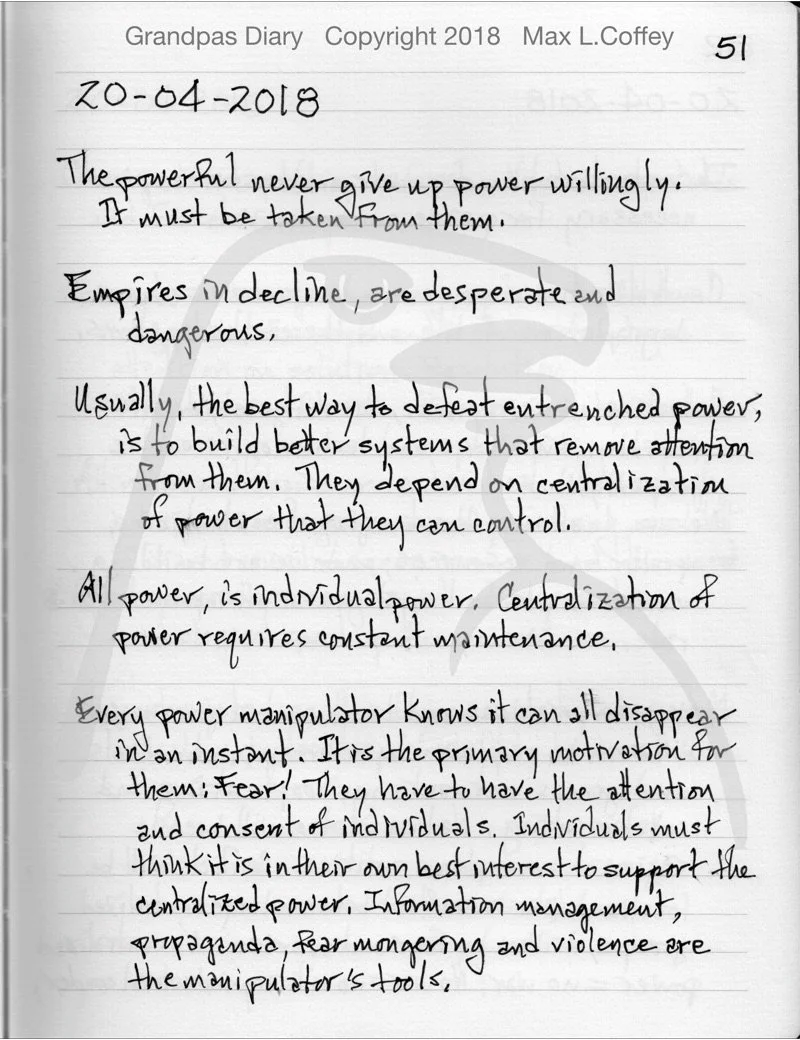 Grandpas Diary Copyright 2018 Max L.Coffey
51
20-04-2018
The powerful never give up power willingly.
It must be taken from them.
Empires in decline, are desperate and
dangerous.
Usually, the best way to defeat entrenched power,
is to build better systems that remove attention
from them. They depend on centralization
of power that they can control.
All power, is individual power. Centralization of
power requires constant maintenance.
Every power manipulator knows it can all disappear
in an instant. It is the primary motivation for
them: Fear! They have to have the attention
and consent of individuals. Individuals must
think it is in their own best interest to support the
centralized power. Information management,
propaganda, fear mongering and violence are
the manipulator's tools.